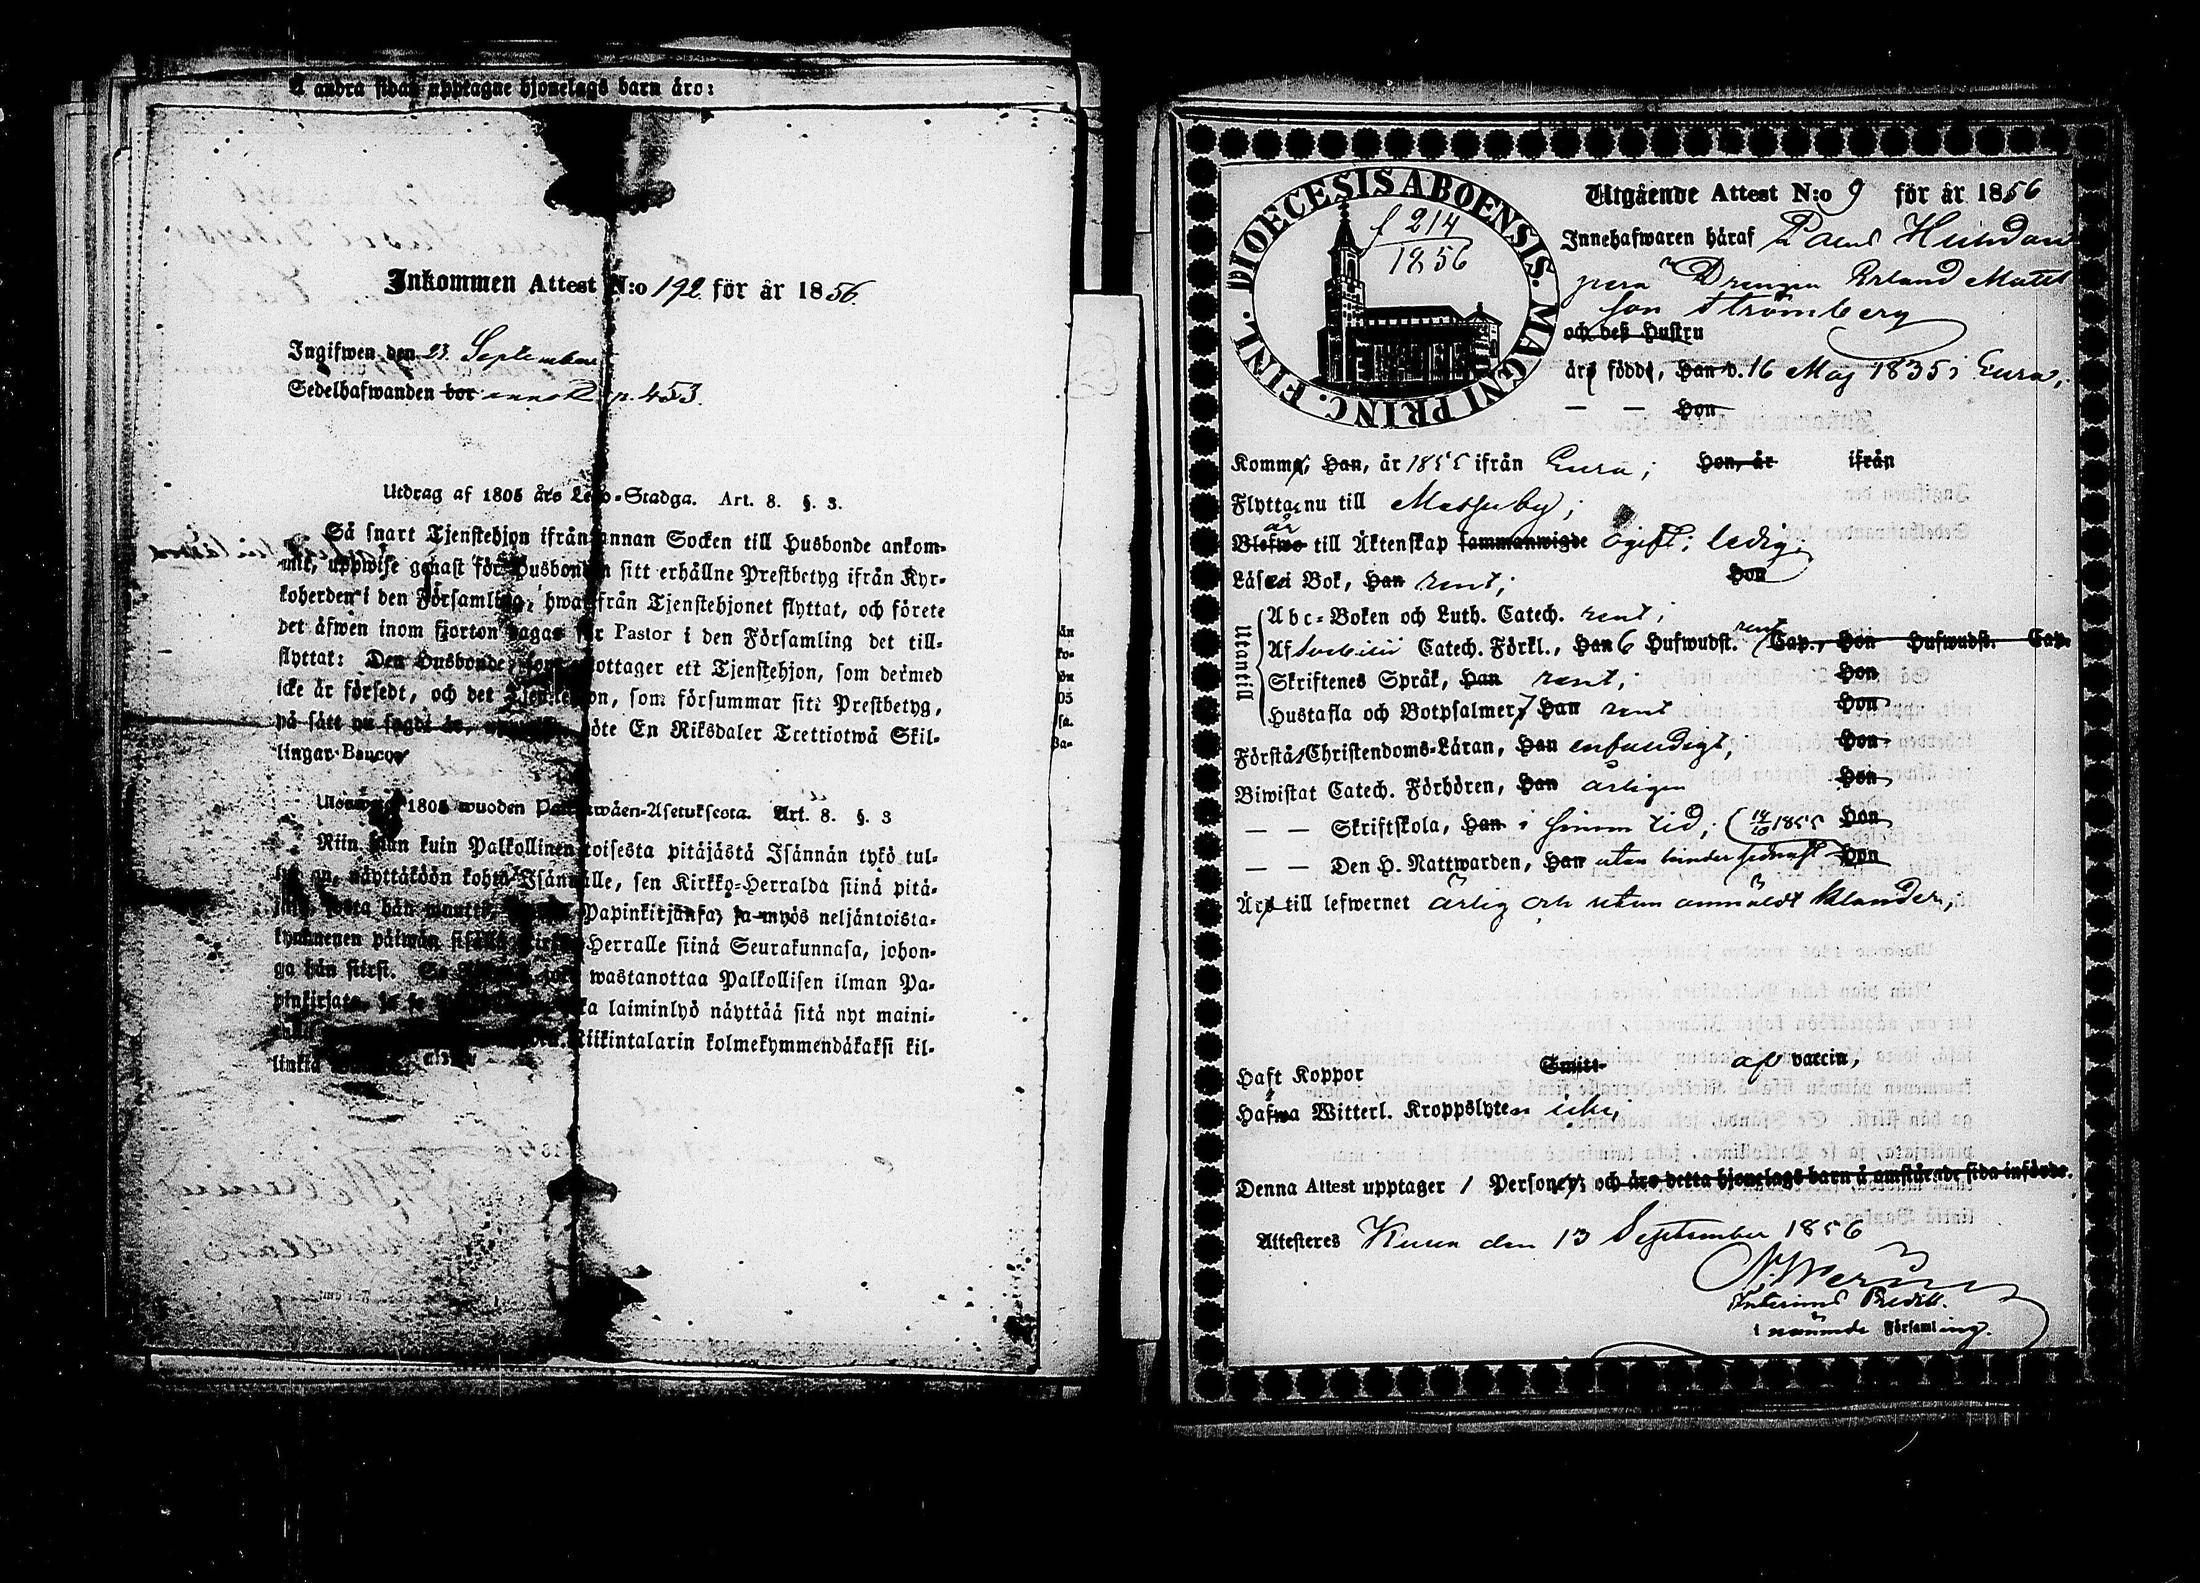 å andra sidan upptagne hjonelags barn äro:
Inkommen Attest N:o 192 för år 1856.
Ingifwen den 23 September
Sedelhafwanden bor p. 453.
Utdrag af 1805 års Lego-Stadga. Art. 8. §. 3.
Så snart Tjenstehjon ifrån annan Socken till Husbonde ankom-
mit, uppwise genast för Husbonden sitt erhållne Prestbetyg ifrån Kyr-
koherden i den Församling, hwarifrån Tjenstehjonet flyttat, och förete
det äfwen inom fjorton dagar för Pastor i den Församling det till-
flyttat: Den Husbonde, som mottager ett Tjenstehjon, som dermed
icke är försedt, och det Tjenstehjon, som försummar sitt Prestbetyg,
på sätt nu sagdt är, böte En Riksdaler Trettiotwå Skil-
lingar Banco.
1805 wuoden Palkkawäen-Asetuksesta. Art. 8. §. 3
Niin pian kuin Palkollinen toisesta pitäjästä Isännän tykö tul-
lut on, näyttäköön kohta Isännälle, sen Kirkko-Herralda siinä pitä-
jäs, josta hän muutti, Papinkirjansa, ja myös neljäntoista-
kymmenen päiwän sisällä Kirkko-Herralle siinä Seurakunnasa, johon-
ga hän siirsi. Se wastanottaa Palkollisen ilman Pa-
pinkirjata, ja se laiminlyö näyttää sitä nyt maini-
Riikintalarin kolmekymmendäkaksi kil-
linkiä
DIOECESIS ABOENSIS. MAGNI PRINC. FINL.
f 214
1856
Utgående Attest N:o 9 för år 1856
Innehafwaren häraf
Drengen Erland Matts
son Strömberg
och dess Hustru
äro födde, Han d. 16 Maj 1835 i Eura,
— — Hon
Komme, Han, år 1855 ifrån Eura; Hon, år ifrån
Flytta nu till Messuby;
är
Blefwo till Äktenskap sammanwigde ogift; ledig;
Läsa i Bok, Han rent; Hon
Utantill
Abc-Boken och Luth. Catech. rent;
rent
Af Svebilii Catech. Förkl., Han 6 Hufwudst. Cap., Hon Hufwudst. Cap.
Skriftenes Språk, Han rent; Hon
Hustafla och Botpsalmer, Han rent Hon
Förstå Christendoms-Läran, Han enfaldigt; Hon
Biwistat Catech. Förhören, Han årligen Hon
— — Skriftskola, Han i sinom tid; (14/10 1855 Hon
— — Den H. Nattwarden, Han utan hinder sednast Hon
Äro till lefwernet ärlig och utan anmäldt klander,
Haft Koppor Smitt- af vaccin,
Hafwa Witterl. Kroppslyten icke,
Denna Attest upptager 1 Personer; och äro detta hjonelags barn å omstående sida införde.
Attesteres den 13 September 1856
Interims Predik.
i nämnde Församling.